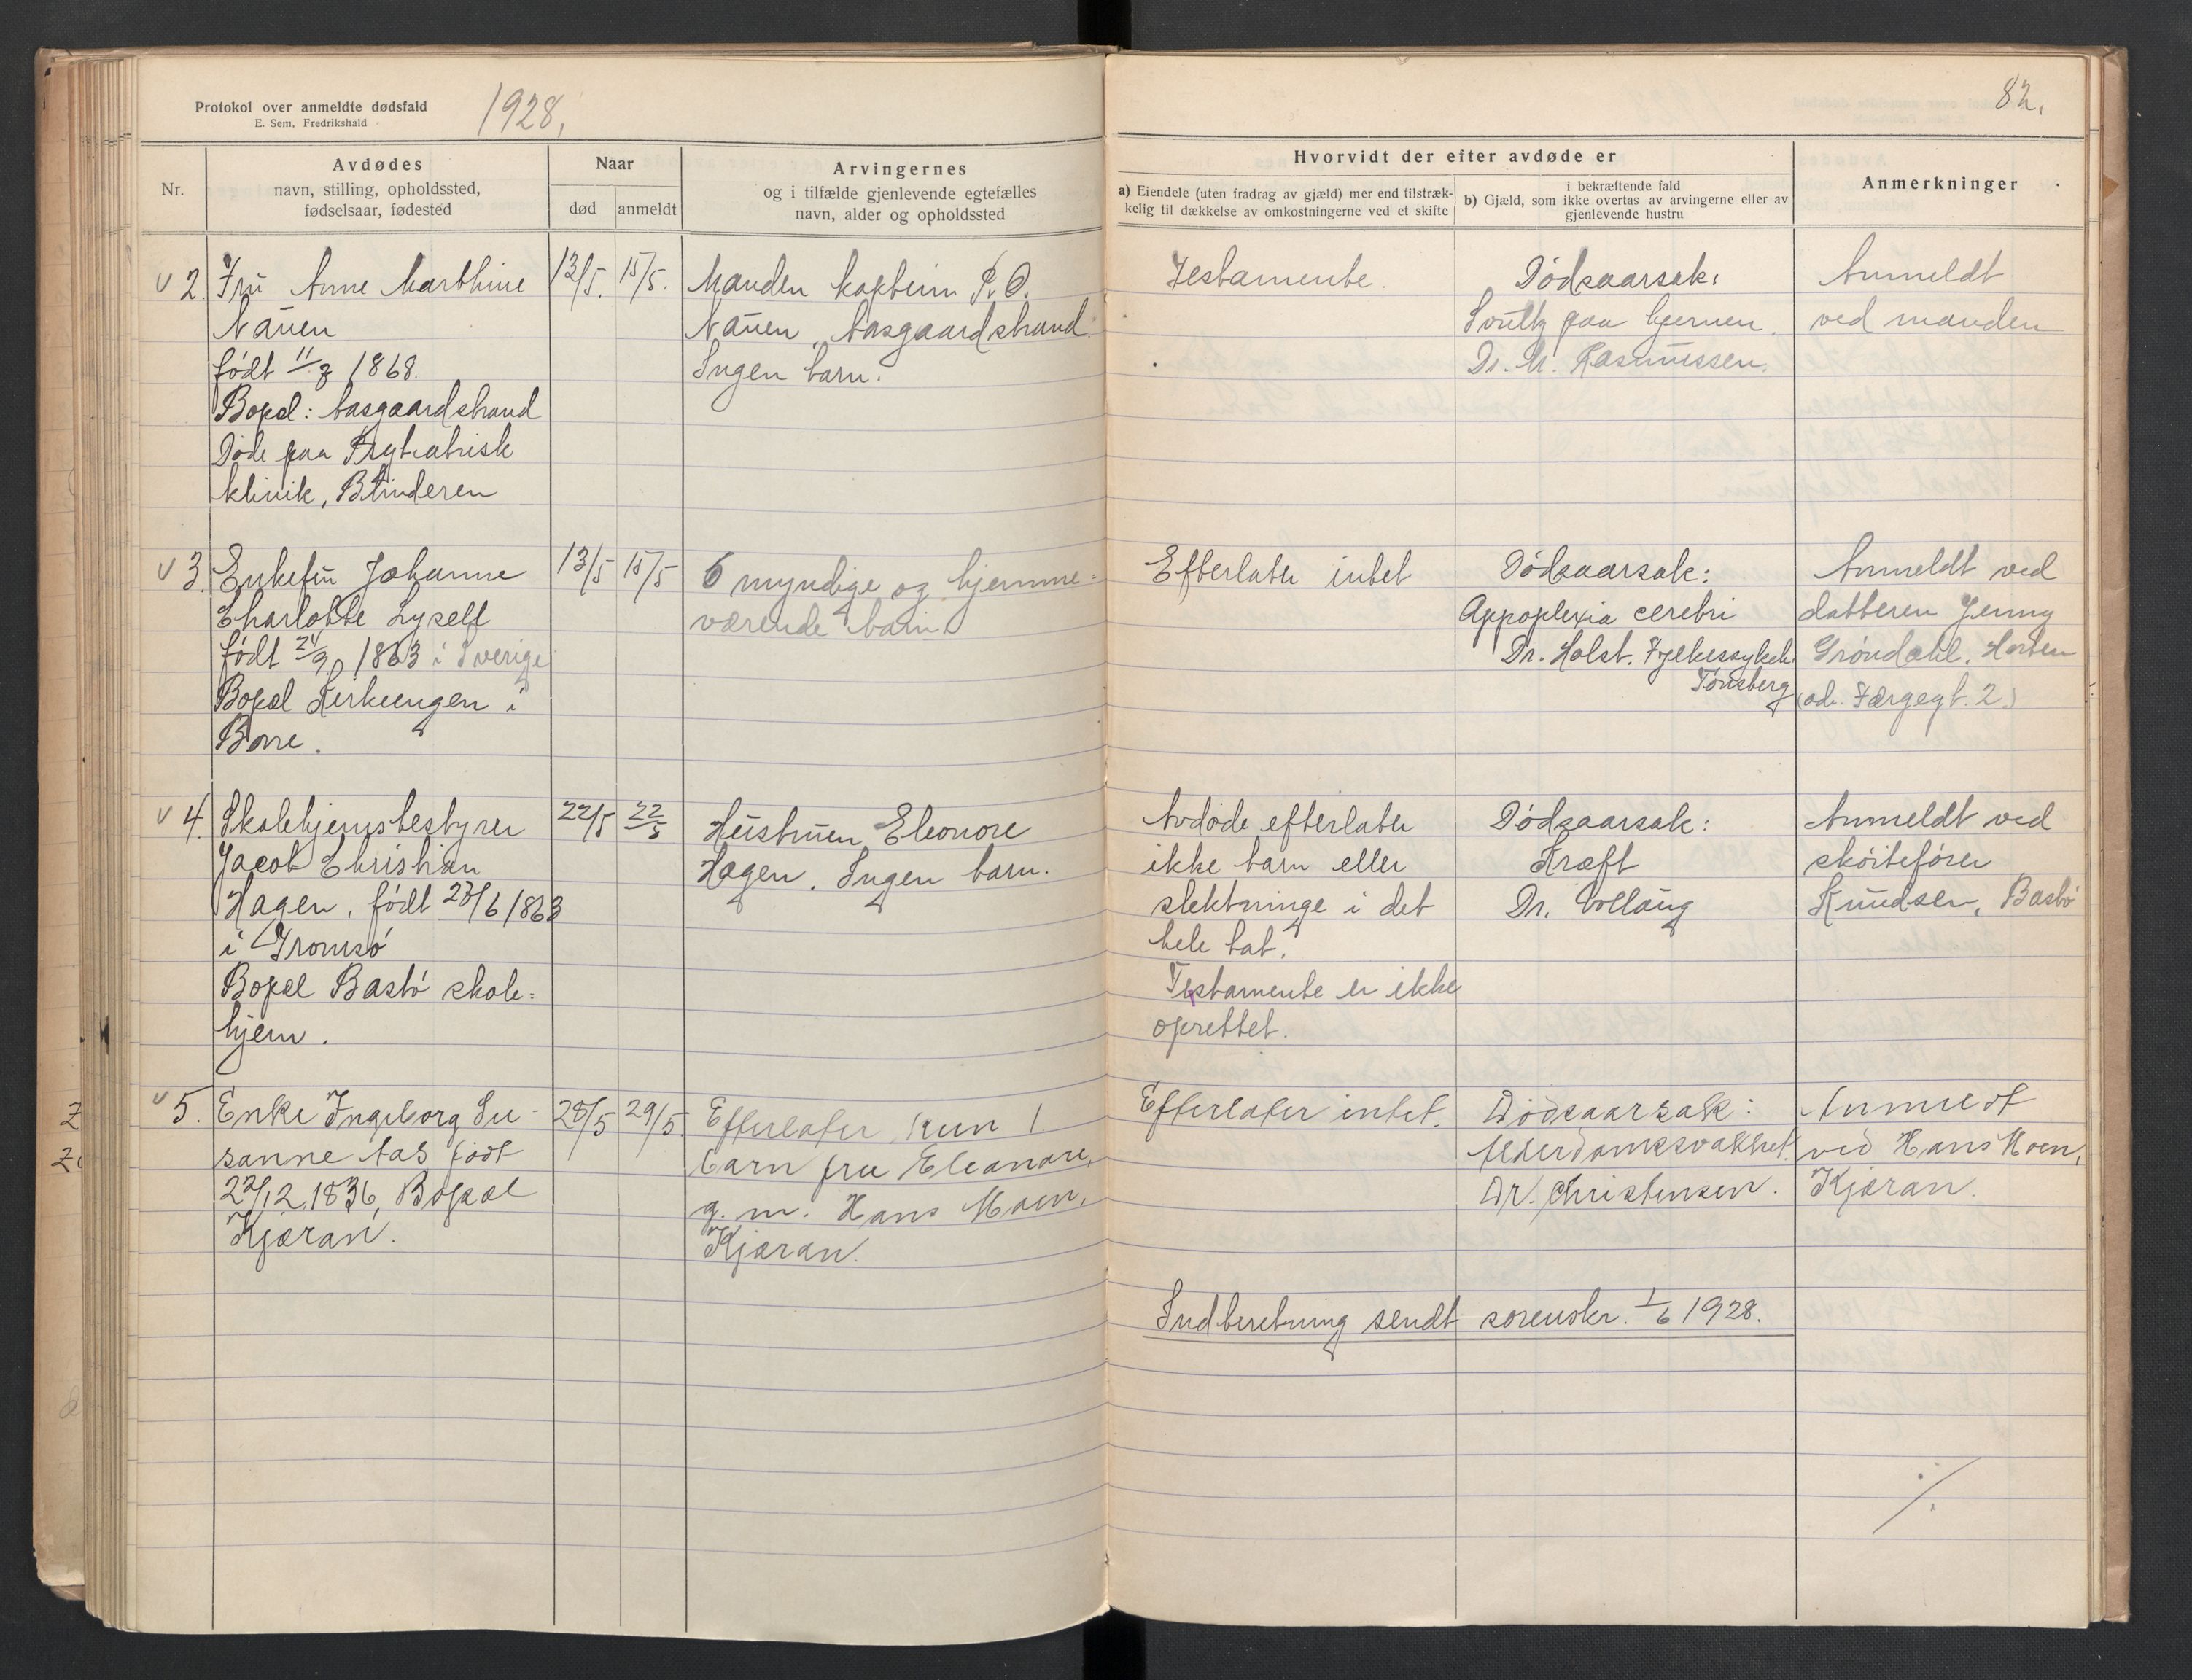 Protokol over anmeldte dødsfald
E. Sem, Fredrikshald
1928.
82.
Nr.
Avdødes
navn, stilling, opholdssted,
fødselsaar, fødested
Naar
død
anmeldt
Arvingernes
og i tilfælde gjenlevende egtefælles
navn, alder og opholdssted
Hvorvidt der efter avdøde er
a) Eiendele (uten fradrag av gjæld) mer end tilstræk-
kelig til dækkelse av omkostningerne ved et skifte
i bekræftende fald
b) Gjæld, som ikke overtas av arvingerne eller av
gjenlevende hustru
Anmerkninger
v 2.
Fru Anne Marthine
Nauen
født 11/8 1868.
Bopæl: Aasgaardstrand
Døde paa Psykiatrisk
klinik, Blinderen
12/5.
15/5.
Manden kaptein P. O.
Nauen, Aasgaardstrand.
Ingen barn.
Testamente.
Dødsaarsak:
Svulst paa hjernen.
Dr. M. Rasmussen.
Anmeldt
ved manden
v 3.
Enkefru Johanne
Charlotte Lysell
født 24/9 1863 i Sverige
Bopæl Kirkeengen i
Borre.
13/5
15/5
6 myndige og hjemme=
værende barn.
Efterlater intet
Dødsaarsak:
Appoplexia cerebri
Dr. Holst. Fylkessykeh.
Tønsberg
Anmeldt ved
datteren Jenny
Grøndahl, Horten
(adr. Færgegt. 2.)
v 4.
Skolehjemsbestyrer
Jacob Christian
Hagen, født 23/6 1863
i Tromsø
Bopæl Bastø skole=
hjem.
22/5
22/5
Hustruen Eleonore
Hagen. Ingen barn.
Avdøde efterlater
ikke barn eller
slektninge i det
hele tat.
Testamente er ikke
oprettet.
Dødsaarsak:
Kræft
Dr. Vollaug
Anmeldt ved
skøitefører
Knudsen, Bastø
v 5.
Enke Ingeborg Su-
sanne Aas født
22/12 1836, Bopæl
Kjæran.
28/5
29/5.
Efterlater kun 1
barn fru Eleanore,
g. m. Hans Moen,
Kjæran.
Efterlater intet.
Dødsaarsak:
Alderdomssvakhet.
Dr. Christensen.
Anmeldt
ved Hans Moen,
Kjæran.
Indberetning sendt sorenskr. 1/6 1928.